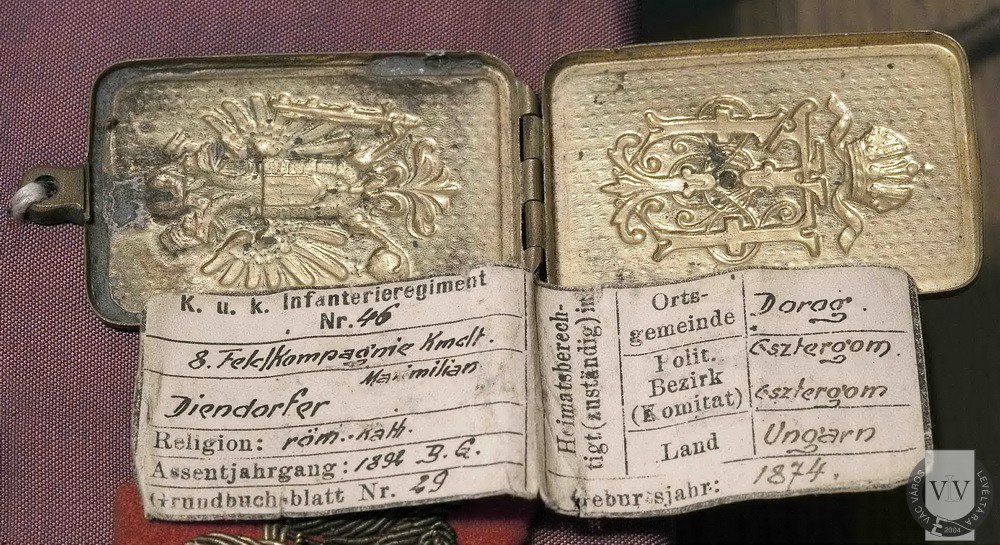 K. u. k. Infanterieregiment
Nr. 46
8. Feldkompagnie Kmdt.
Maximilian
Diendorfer
Religion: röm.-kath.
Assentjahrgang: 1892 B. G.
Grundbuchsblatt Nr. 29
Heimatsberech-
tigt (zuständig) in
Orts-
gemeinde
Dorog.
Polit.
Bezirk
(Komitat)
Esztergom.
Esztergom
Land
Ungarn
Geburtsjahr: 1874.
VÁC VÁROS LEVÉLTÁRA
VVL
2004